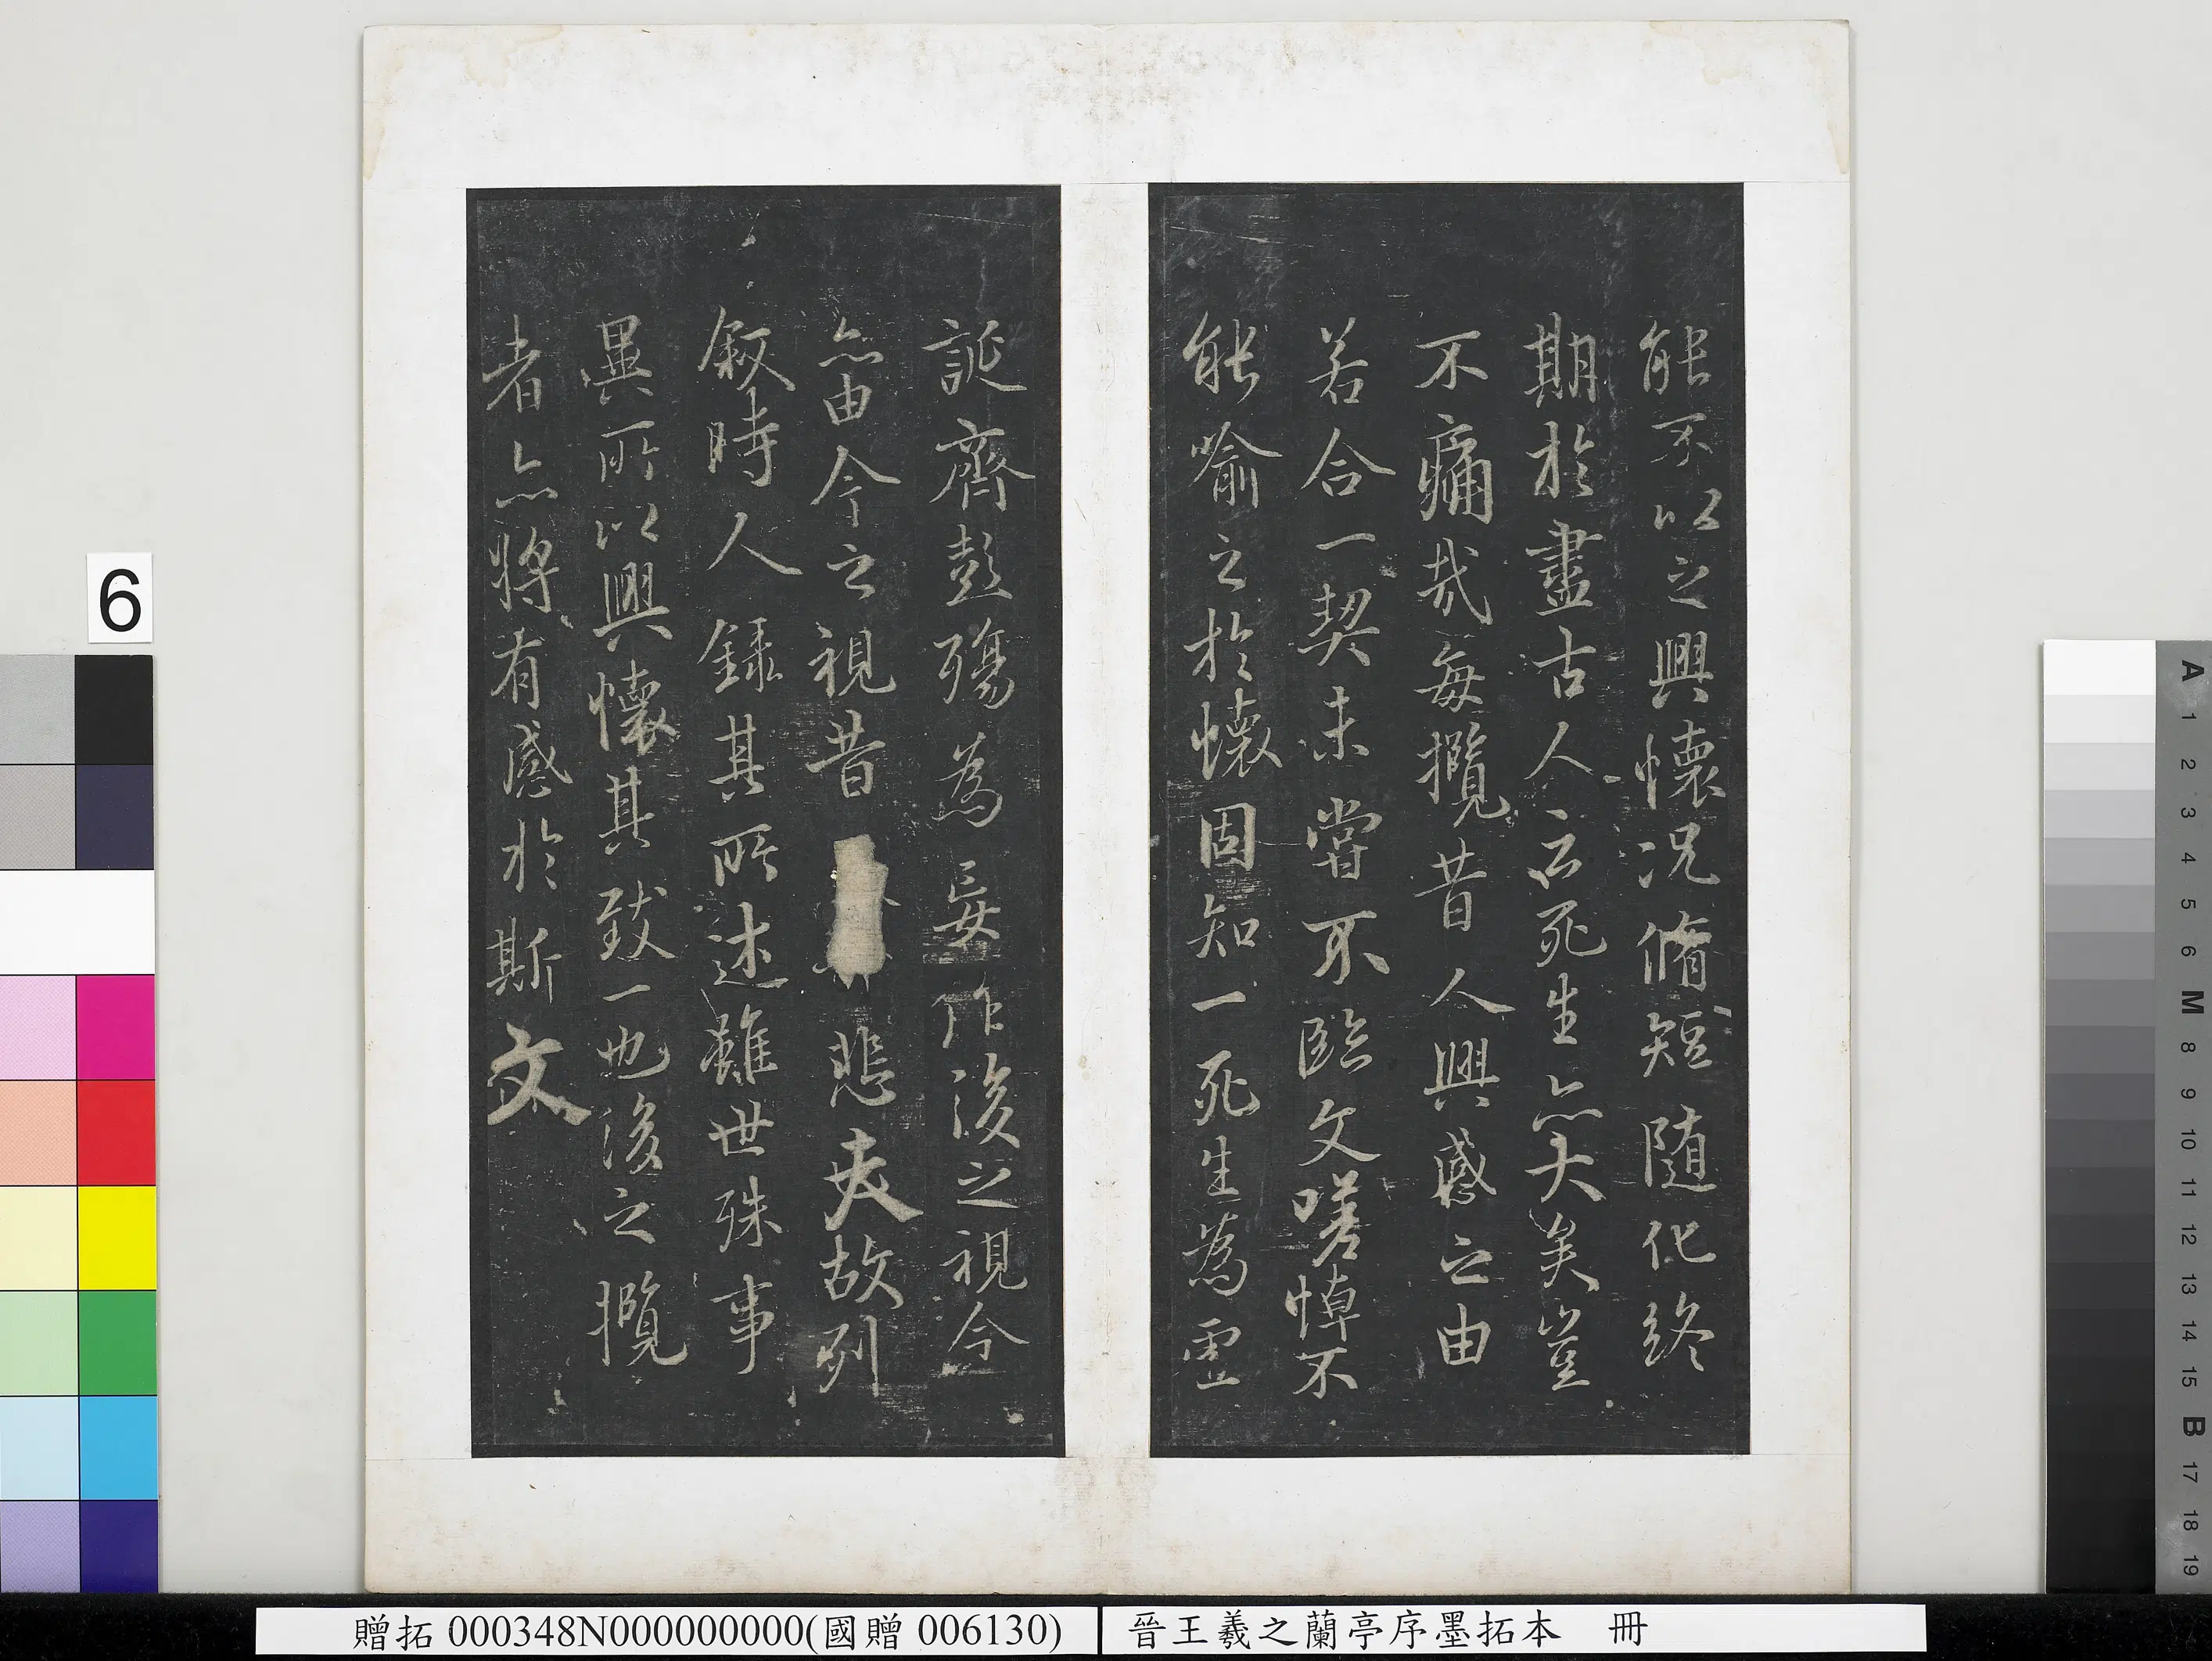 能不以之興懷況脩短隨化終
期於盡古人云死生亦大矣豈
不痛哉每攬昔人興感之由
若合一契未嘗不臨文嗟悼不
能喻之於懷固知一死生為虛
誕齊彭殤為妄作後之視今
亦由今之視昔 悲夫故列
敘時人錄其所述雖世殊事
異所以興懷其致一也後之攬
者亦將有感於斯文
6
A
1
2
3
4
5
6
M
8
9
10
11
12
13
14
15
B
17
18
19
贈拓 000348N000000000(國贈 006130)
晉王羲之蘭亭序墨拓本 冊